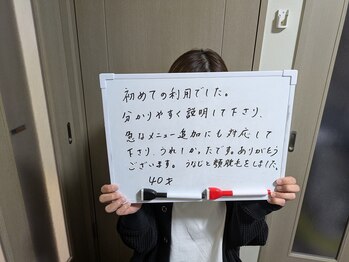 初めての利用でした。
分かりやすく説明して下さり、
急なメニュー追加にも対応して
下さり、うれしかったです。ありがとう
ございます。うなじと顔脱毛をしました。
40才